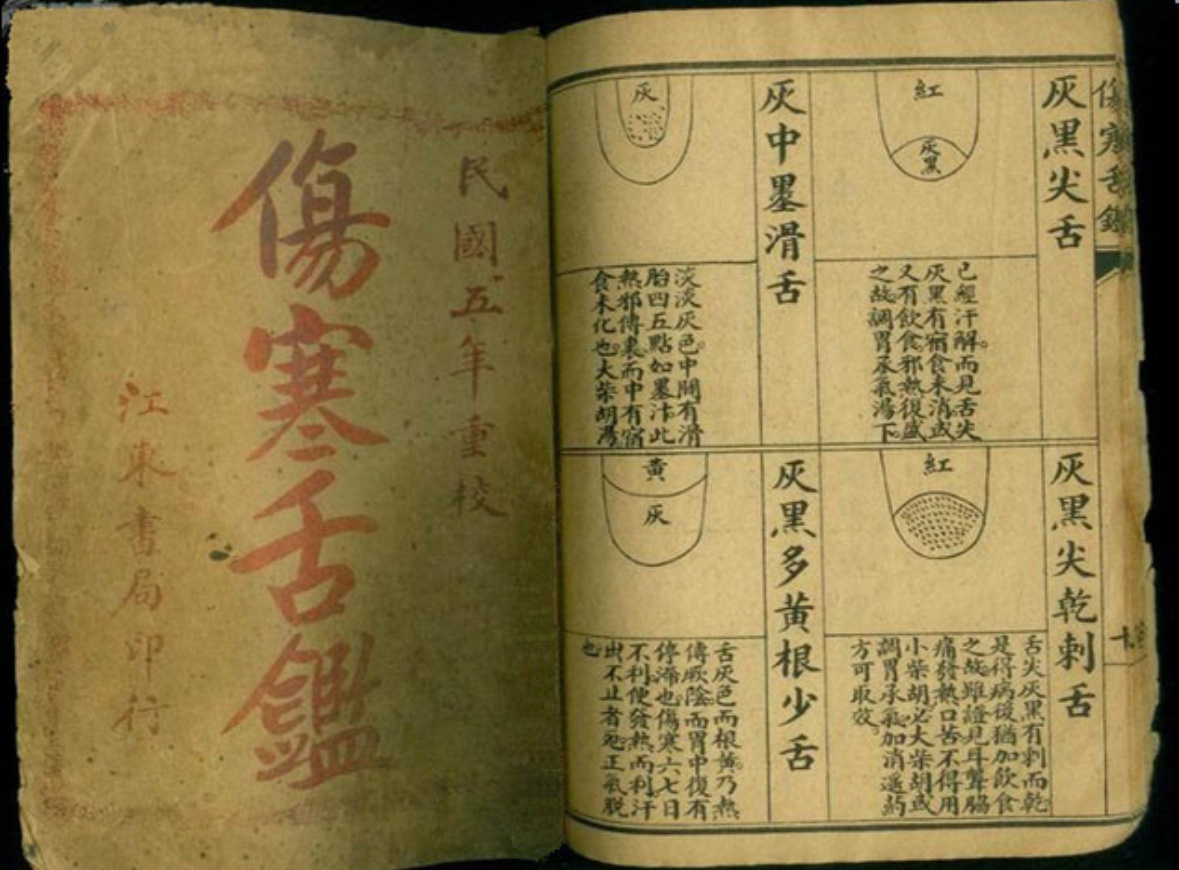 民國五年重校
傷寒舌鑑
江東書局印行
傷寒舌鑑
灰黑尖舌
紅
灰黑
已經汗解。而見舌尖
灰黑有宿食未消。或
又有飲食邪熱復盛
之故調胃承氣湯下
灰中墨滑舌
灰
淡淡灰色。中間有滑
胎四五點如墨汁此
熱邪傳裏。而中有宿
食未化也大柴胡湯
灰黑尖乾刺舌
紅
舌尖灰黑有刺而乾
是得病後猶加飲食
之故雖證見耳聾脇
痛發熱口苦不得用
小柴胡必大柴胡或
調胃承氣加消導藥
方可取效。
灰黑多黃根少舌
黃
灰
舌灰色而根黃。乃熱
傳厥陰。而胃中復有
停滯也。傷寒六七日
不利便發熱而利汗
出不止者死正氣脫
也